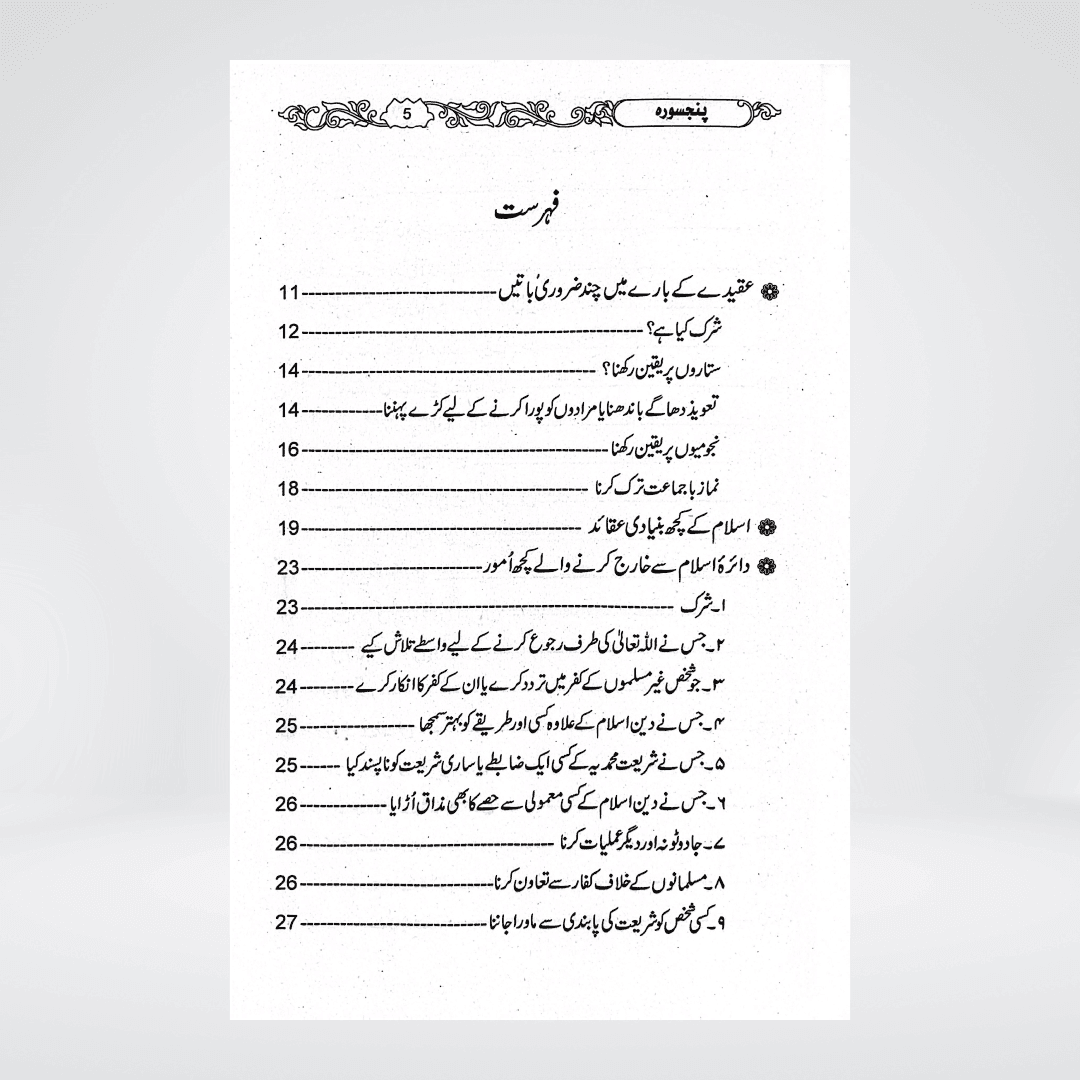 پنجسورہ 5
فہرست
عقیدے کے بارے میں چند ضروری باتیں ------------------------------ 11
شرک کیا ہے؟ ---------------------------------------------------- 12
ستاروں پر یقین رکھنا؟ --------------------------------------------- 14
تعویذ دھاگے باندھنا یا مرادوں کو پورا کرنے کے لیے کڑے پہننا ------------ 14
نجومیوں پر یقین رکھنا ----------------------------------------------- 16
نماز باجماعت ترک کرنا -------------------------------------------- 18
اسلام کے کچھ بنیادی عقائد ------------------------------------------- 19
دائرۂ اسلام سے خارج کرنے والے کچھ اُمور ---------------------------- 23
۱۔ شرک --------------------------------------------------------- 23
۲۔ جس نے اللہ تعالیٰ کی طرف رجوع کرنے کے لیے واسطے تلاش کیے -------- 24
۳۔ جو شخص غیر مسلموں کے کفر میں تردد کرے یا ان کے کفر کا انکار کرے -------- 24
۴۔ جس نے دین اسلام کے علاوہ کسی اور طریقے کو بہتر سمجھا ----------------- 25
۵۔ جس نے شریعت محمدیہ کے کسی ایک ضابطے یا ساری شریعت کو ناپسند کیا ------ 25
۶۔ جس نے دین اسلام کے کسی معمولی سے حصے کا بھی مذاق اُڑایا ------------- 26
۷۔ جادو ٹونہ اور دیگر عملیات کرنا --------------------------------------- 26
۸۔ مسلمانوں کے خلاف کفار سے تعاون کرنا ----------------------------- 26
۹۔ کسی شخص کو شریعت کی پابندی سے ماورا جاننا ---------------------------- 27